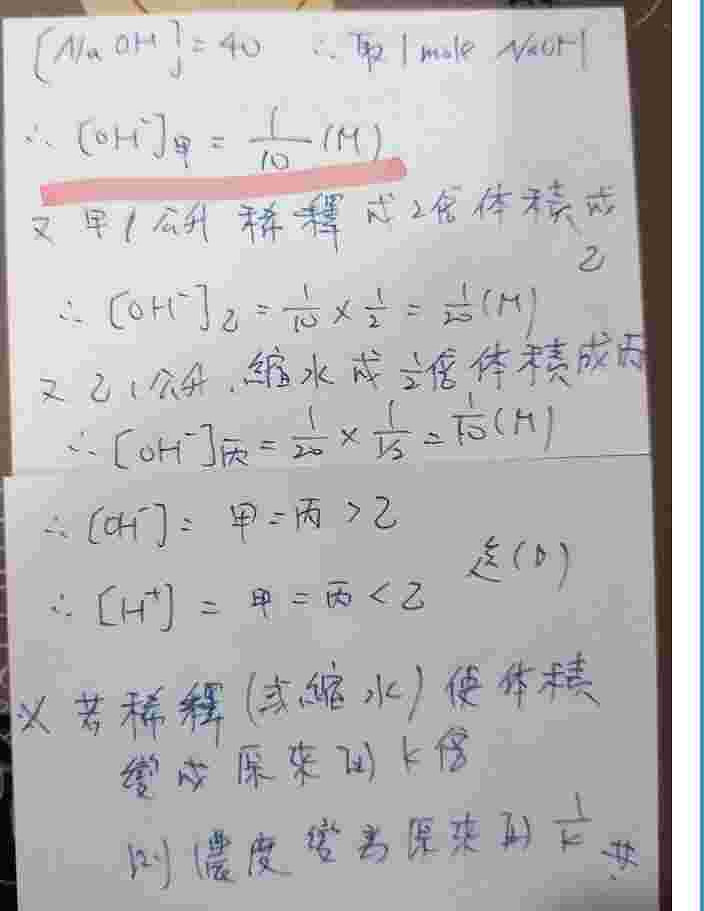 [NaOH]=40 ∴取1mole NaOH
∴ [OH⁻]甲 = 1/10 (M)
又甲1公升稀釋成2倍体積成
乙
∴ [OH⁻]乙 = 1/10 × 1/2 = 1/20 (M)
又乙1公升,縮水成1/2倍体積成丙
∴ [OH⁻]丙 = 1/20 × 1/1/2 = 1/10 (M)
∴ [OH⁻] = 甲=丙>乙
選(D)
∴ [H⁺] = 甲=丙<乙
※若稀釋(或縮水)使体積
變成原來的k倍
則濃度變為原來的1/k